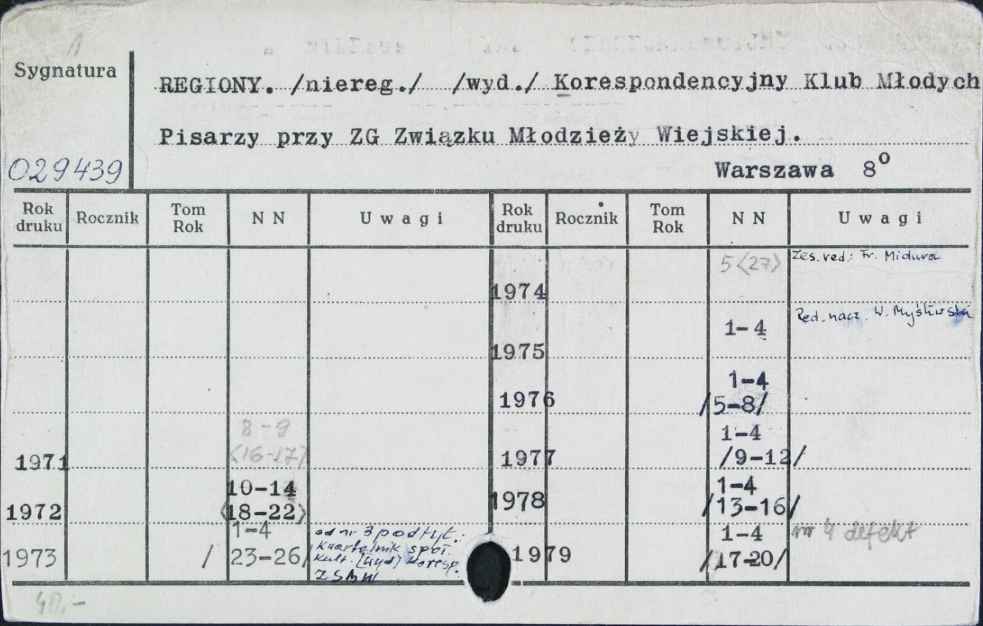 Sygnatura
REGIONY. /niereg./ /wyd./ Korespondencyjny Klub Młodych
Pisarzy przy ZG Związku Młodzieży Wiejskiej.
029439
Warszawa 8°
Rok druku Rocznik Tom Rok N N Uwagi Rok druku Rocznik Tom Rok N N Uwagi
5<27> Zes. red: Fr. Midura
1974
1-4 Red. nacz. W. Myśliwski
1975
1-4
1976 /5-8/
8-9 1-4
1971 <16-17> 1977 /9-12/
10-14 1-4
1972 <18-22> 1978 /13-16/
1-4 od nr 3 podtyt.: 1-4 nr 4 defekt
1973 / 23-26/ Kwartalnik społ. 1979 /17-20/
Kult. (wyd)
ZSMW
40,-